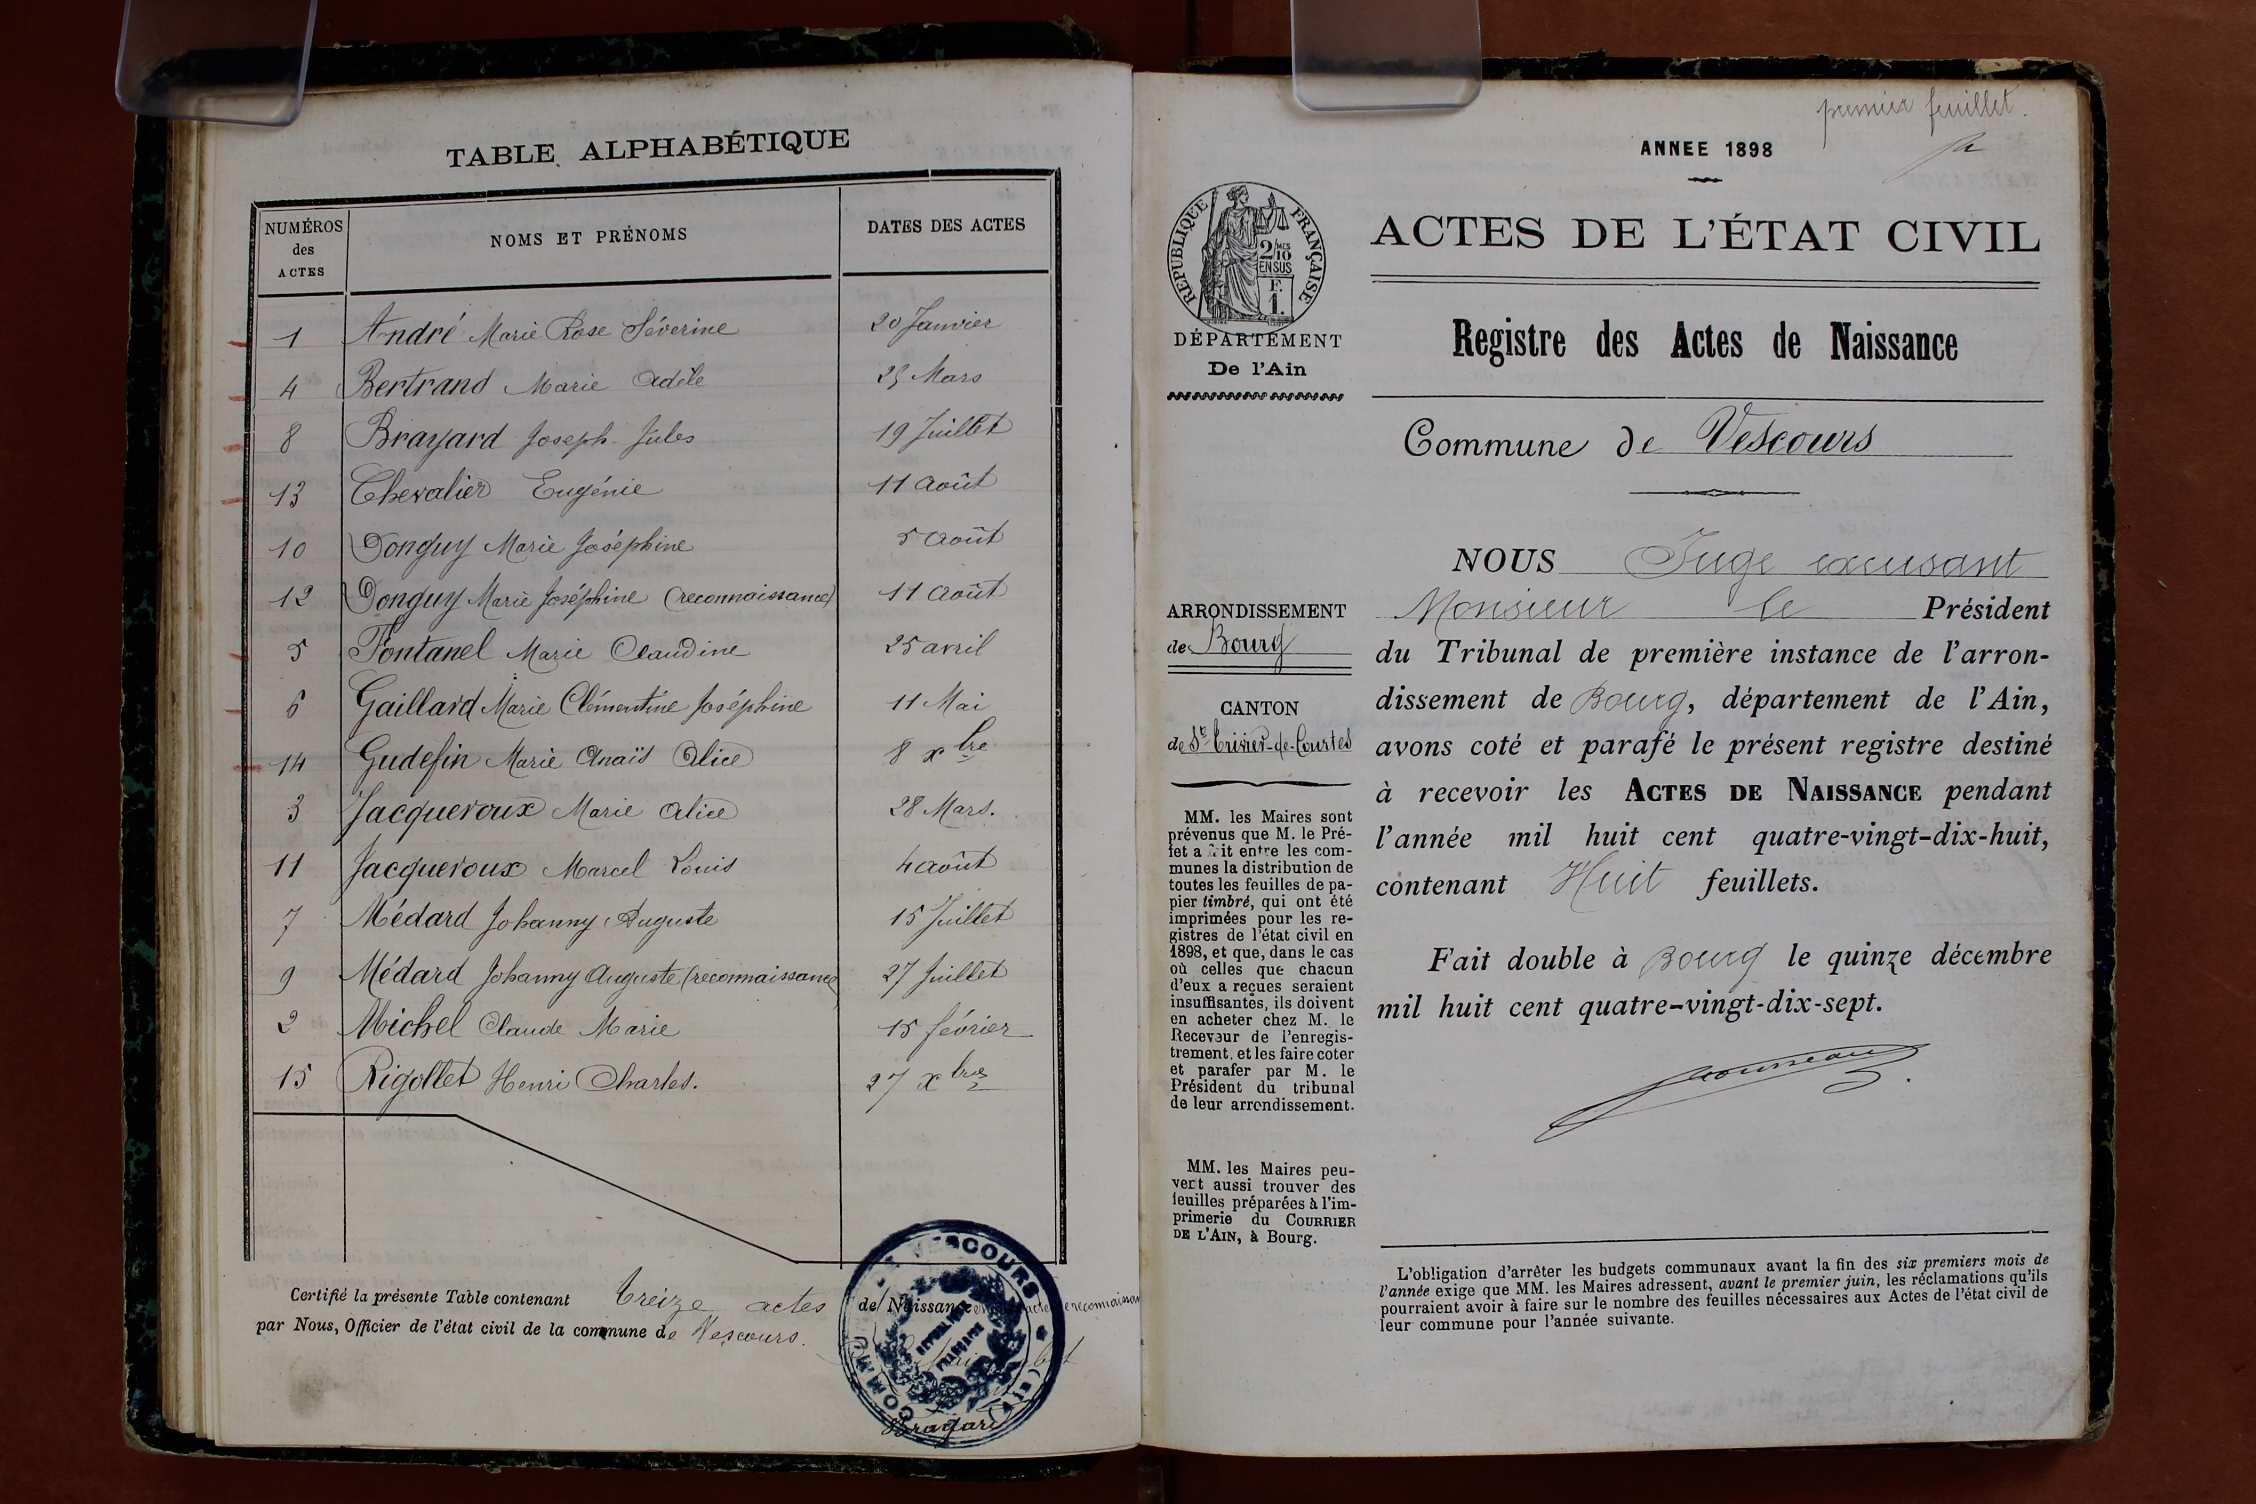 TABLE ALPHABÉTIQUE
NUMÉROS des ACTES | NOMS ET PRÉNOMS | DATES DES ACTES
1 André Marie Rose Séverine 20 Janvier
4 Bertrand Marie Adèle 29 Mars
8 Brayard Joseph Jules 19 Juillet
13 Chevalier Eugénie 11 août
10 Donguy Marie Joséphine 5 août
12 Donguy Marie Joséphine (reconnaissance) 11 août
5 Fontanel Marie Claudine 25 avril
6 Gaillard Marie Clémentine Joséphine 11 Mai
14 Gudefin Marie Anaïs Alice 8 xbre
3 Jacqueroux Marie Alice 28 Mars.
11 Jacqueroux Marcel Louis 4 août
7 Médard Johanny Auguste 15 Juillet
9 Médard Johanny Auguste (reconnaissance) 27 Juillet
2 Michel Claude Marie 15 février
15 Rigollet Henri Charles. 27 xbre
Certifié la présente Table contenant treize actes de Naissance
par Nous, Officier de l'état civil de la commune de Vescours.
RÉPUBLIQUE FRANÇAISE
Brayard
premier feuillet.
ANNEE 1898
RÉPUBLIQUE FRANÇAISE
2/10 MES
EN SUS
F.
1.
DÉPARTEMENT
De l'Ain
ACTES DE L'ÉTAT CIVIL
Registre des Actes de Naissance
Commune de Vescours
ARRONDISSEMENT
de Bourg
CANTON
de St Trivier-de-Courtes
MM. les Maires sont
prévenus que M. le Pré-
fet a fait entre les com-
munes la distribution de
toutes les feuilles de pa-
pier timbré, qui ont été
imprimées pour les re-
gistres de l'état civil en
1898, et que, dans le cas
où celles que chacun
d'eux a reçues seraient
insuffisantes, ils doivent
en acheter chez M. le
Receveur de l'enregis-
trement, et les faire coter
et parafer par M. le
Président du tribunal
de leur arrondissement.
MM. les Maires peu-
vent aussi trouver des
feuilles préparées à l'im-
primerie du COURRIER
DE L'AIN, à Bourg.
NOUS Juge excusant
Monsieur le Président
du Tribunal de première instance de l'arron-
dissement de Bourg, département de l'Ain,
avons coté et parafé le présent registre destiné
à recevoir les ACTES DE NAISSANCE pendant
l'année mil huit cent quatre-vingt-dix-huit,
contenant Huit feuillets.
Fait double à Bourg le quinze décembre
mil huit cent quatre-vingt-dix-sept.
L'obligation d'arrêter les budgets communaux avant la fin des six premiers mois de
l'année exige que MM. les Maires adressent, avant le premier juin, les réclamations qu'ils
pourraient avoir à faire sur le nombre des feuilles nécessaires aux Actes de l'état civil de
leur commune pour l'année suivante.